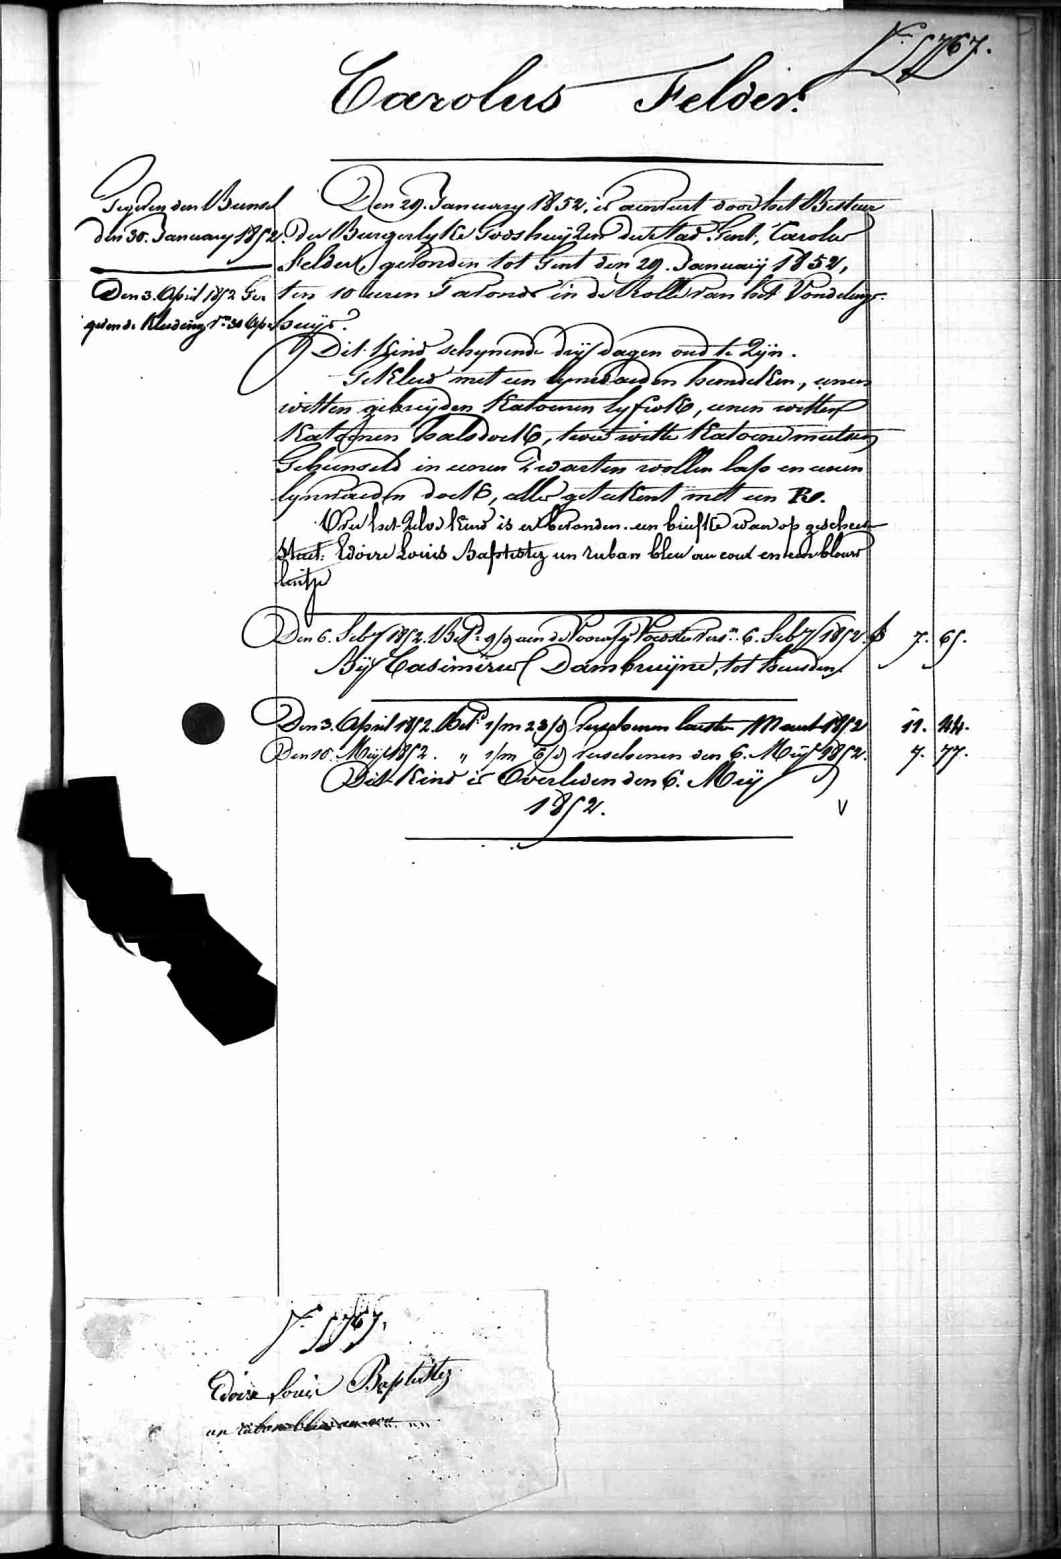 N.º 5767.
Carolus Felder.
Gegeven den Bunsel
den 30. January 1852.
Den 3. April 1852 Ge
geven de Kleeding
Den 29. January 1852, is aenveert door het Bestuer
der Burgerlyke Godshuyzen der Stad Gent, Carolus
Felder, gevonden tot Gent den 29. January 1852,
ten 10 uren 's avonds in de Rolle van het Vondelings-
huys.
Dit Kind schynende dry dagen oud te Zyn.
Gekleed met een lynwaeden hemdeken, eenen
witten gebreyden Katoenen lyfrok, eenen witten
Katoenen halsdoek, twee witte Katoene mutsen
Gebunseld in eenen Zwarten wollen lap en eenen
lynwaeden doek, alles geteekent met een
Over het Zelve Kind is er bevonden een briefke waer op geschreven
Staet: Edoire Louis Baptistez un ruban bleu au cour en een blauw
lintje
Den 6. Feb.y 1852. 6. Feb.y 1852. 7. 65.
By Casimirus Dambruyne, tot heusden.
Den 3. April 1852. Bet.d 1/m 23/d verschenen laesten Maert 1852 11. 44.
Den 10. Mey 1852. " 1/m 6/d verschenen den 6. Mey 1852. 7. 77.
Dit Kind is Overleden den 6. Mey
1852.
N.º 5767.
Edoire Louis Baptistez
un ruban bleu au cou